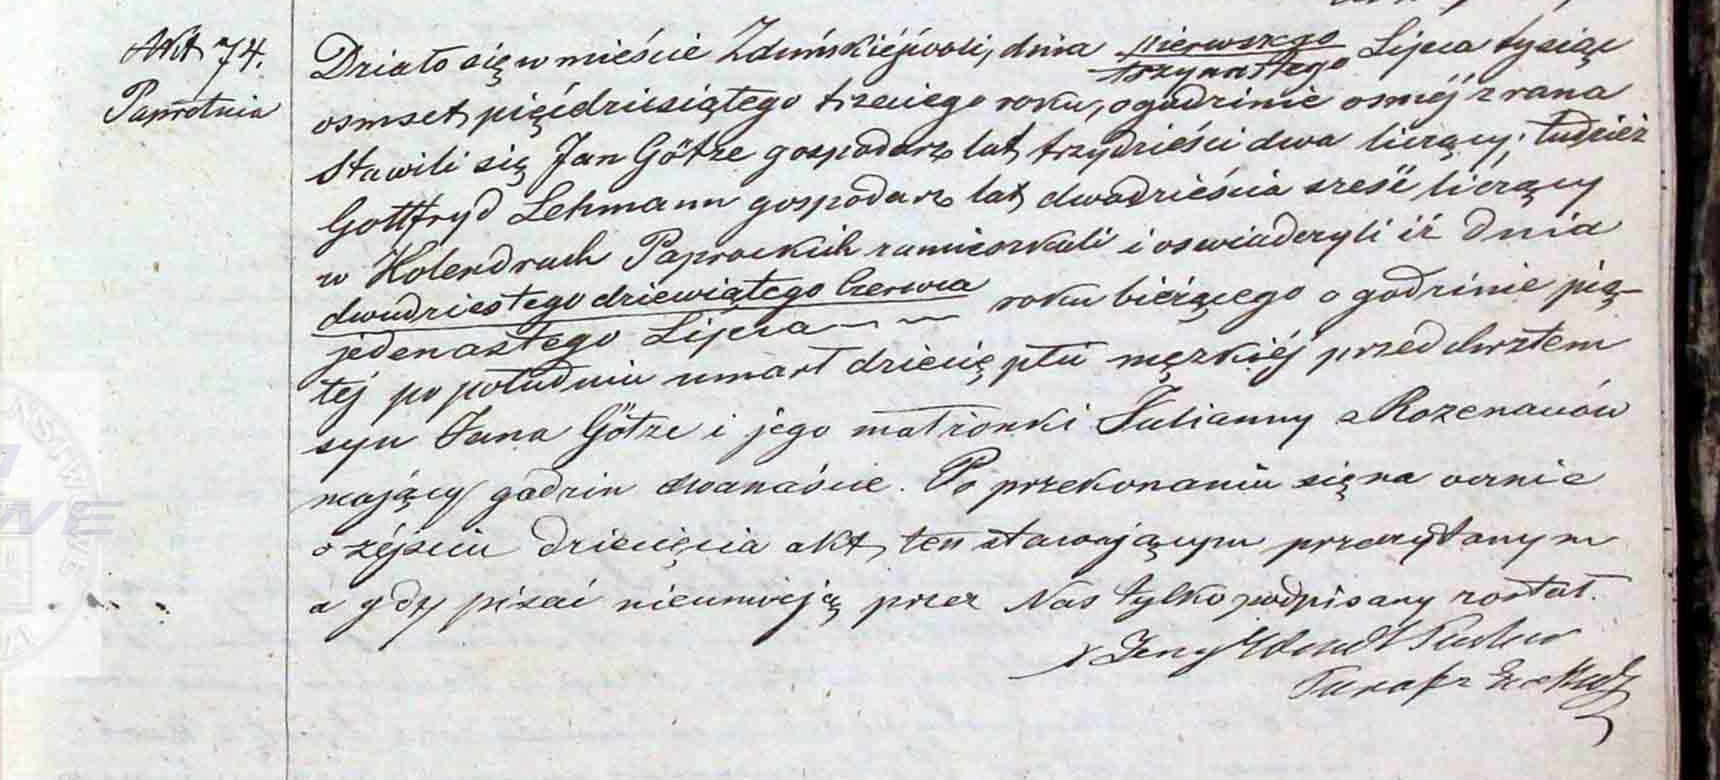 Akt 74.
Paprotnia
Działo się w mieście Zduńskiéjwoli, dnia pierwszego
trzynastego Lipca tysiąc
osmset pięćdziesiątego trzeciego roku, o godzinie osméj z rana
Stawili się Jan Götze gospodarz lat trzydzieści dwa liczący, tudzież
Gottfryd Lehmann gospodarz lat dwadzieścia sześć liczący
w Holendrach Paprockich zamieszkali i oswiadczyli iż dnia
dwudziestego dziewiątego Czerwca
jedenastego Lipca roku bieżącego o godzinie pią-
téj po południu umarł dziecię płci męzkiéj przed chrztem
syn Jana Götze i jego małżonki Julianny z Rozenauów
mający godzin dwanaście. Po przekonaniu się na ocznie
o zéjściu dziecięcia akt ten stawającym przeczytanym
a gdy pisać nieumieją przez Nas tylko podpisany został.